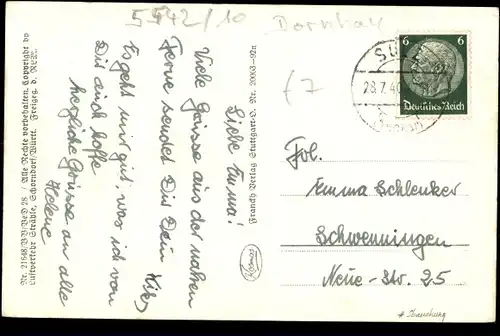 5542/10
Dornhan
Liebe Emma!
Viele Grüsse aus der nahen
Ferne sendet Dir Dein
Es geht mir gut, was ich von
Dir auch hoffe
herzliche Grüsse an alle
Helene
Nr. 21648/BB/VeD 28 / Alle Rechte vorbehalten. Copyright by
Luftverkehr Strähle, Schorndorf/Württ. Freigeg. d. RLM.
Franckh Verlag Stuttgart-O. Nr.
6 6
Deutsches Reich
SULZ
28.7.40
Frl.
Emma Schlenker
Schwenningen
Neue-Str. 25